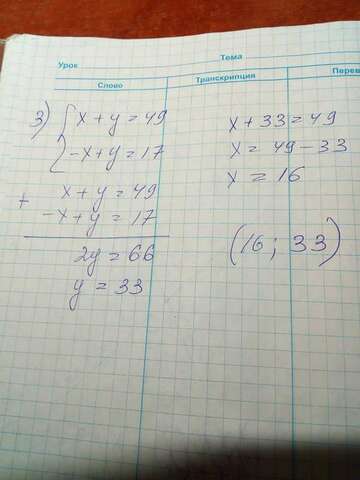 Тема
Урок
Слово
Транскрипция
Перев
3) { x + y = 49
-x + y = 17
+ x + y = 49
-x + y = 17
2y = 66
y = 33
x + 33 = 49
x = 49 - 33
x = 16
(16 ; 33)